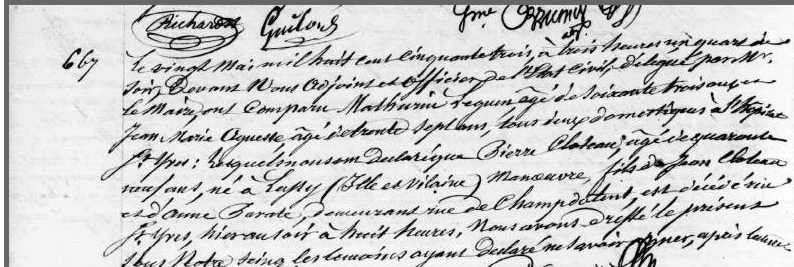 Richard Guilou
667 Le vingt Mai mil huit cent Cinquante trois, à trois heures un quart du
soir, Devant Nous Adjoint et officier de l'Etat Civil, délégué par Mr.
le Maire, ont Comparu Mathurin Lequen âgé de soixante trois ans et
Jean Marie âgé de trente sept ans, tous deux domestiques à l'hospice
St. Yves; lesquels nous ont declaré que Pierre Cloleau, âgé de quarante
neuf ans, né à (Ille et Vilaine) Manœuvre, fils de Jean Cloleau
et d'anne demeurant rue de Champ dolent, est décédé rue
St. Yves, hier au soir à huit heures, Nous avons dressé le présent
sous Notre Seing les temoins ayant declaré ne savoir signer, après lecture